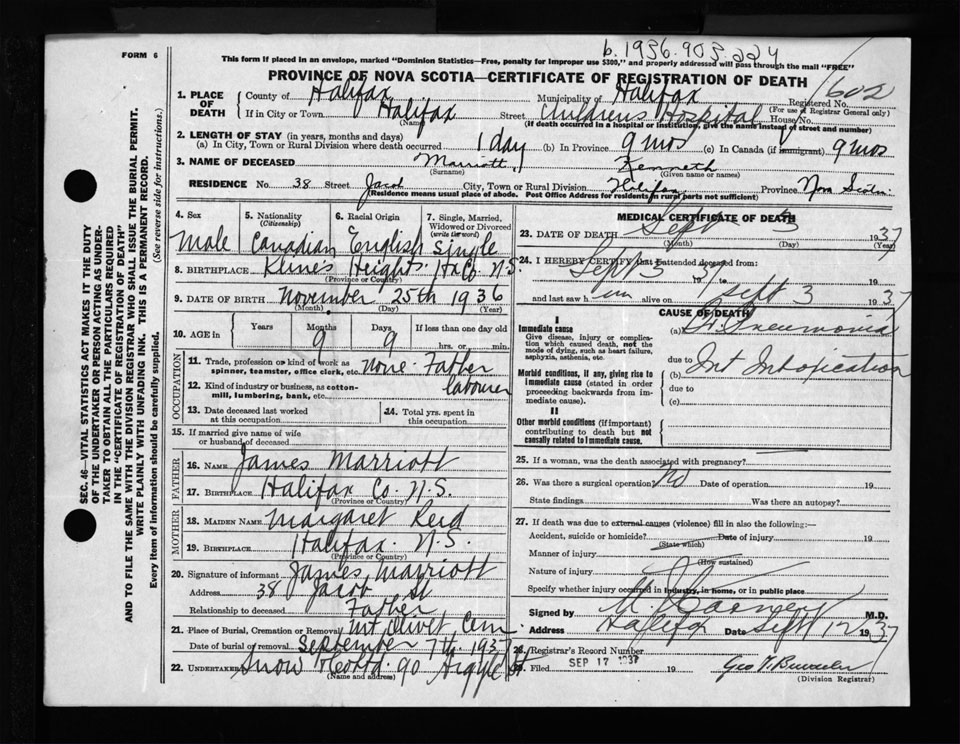 b. 1936.903.224
FORM 6
This form if placed in an envelope, marked "Dominion Statistics—Free, penalty for improper use $300," and properly addressed will pass through the mail "FREE"
PROVINCE OF NOVA SCOTIA—CERTIFICATE OF REGISTRATION OF DEATH
1602
1. PLACE OF DEATH
County of Halifax Municipality of Halifax Registered No.
(For use of Registrar General only)
If in City or Town Halifax Street Childrens Hospital House No.
(Name) (If death occurred in a hospital or institution, give the name instead of street and number)
2. LENGTH OF STAY (in years, months and days)
(a) In City, Town or Rural Division where death occurred 1 day (b) In Province 9 mos (c) In Canada (if immigrant) 9 mos
3. NAME OF DECEASED Marriott, Kenneth
(Surname) (Given name or names)
RESIDENCE No. 38 Street Jacob City, Town or Rural Division Halifax Province Nova Scotia
(Residence means usual place of abode. Post Office Address for residents in rural parts not sufficient)
4. Sex Male
5. Nationality (Citizenship) Canadian
6. Racial Origin English
7. Single, Married, Widowed or Divorced (write the word) Single
8. BIRTHPLACE Kline's Heights Hx Co. N.S.
(Province or Country)
9. DATE OF BIRTH November 25th 1936
(Month) (Day) (Year)
10. AGE in Years Months 9 Days 9 If less than one day old hrs. or min.
OCCUPATION
11. Trade, profession or kind of work as spinner, teamster, office clerk, etc. None - Father
12. Kind of industry or business, as cotton-mill, lumbering, bank, etc. labourer
13. Date deceased last worked at this occupation
14. Total yrs. spent in this occupation
15. If married give name of wife or husband of deceased
FATHER
16. NAME James Marriott
17. BIRTHPLACE Halifax Co. N.S.
(Province or Country)
MOTHER
18. MAIDEN NAME Margaret Reid
19. BIRTHPLACE Halifax N.S.
(Province or Country)
20. Signature of informant James Marriott
Address 38 Jacob St
Relationship to deceased Father
21. Place of Burial, Cremation or Removal Mt Olivet Cem
Date of burial or removal September 7th 1937
22. UNDERTAKER Snow & Co Ltd. 90 Argyle St
(Name and address)
MEDICAL CERTIFICATE OF DEATH
23. DATE OF DEATH Sept 3 1937
(Month) (Day) (Year)
24. I HEREBY CERTIFY that I attended deceased from:
Sept 3 1937 to Sept 3
and last saw him alive on 1937
CAUSE OF DEATH
I
Immediate cause
Give disease, injury or complication which caused death, not the mode of dying, such as heart failure, asphyxia, asthenia, etc.
(a) Br. Pneumonia
due to
Morbid conditions, if any, giving rise to immediate cause (stated in order proceeding backwards from immediate cause).
(b) Int Intoxication
due to
(c)
II
Other morbid conditions (if important) contributing to death but not causally related to immediate cause.
25. If a woman, was the death associated with pregnancy?
26. Was there a surgical operation No Date of operation 19
State findings Was there an autopsy?
27. If death was due to external causes (violence) fill in also the following:—
Accident, suicide or homicide? Date of injury 19
(State which)
Manner of injury
(How sustained)
Nature of injury
Specify whether injury occurred in industry, in home, or in public place
Signed by M.D.
Address Halifax Date Sept 12 1937
28. Registrar's Record Number
29. Filed SEP 17 1937 19
(Division Registrar)
SEC. 46—VITAL STATISTICS ACT MAKES IT THE DUTY
OF THE UNDERTAKER OR PERSON ACTING AS UNDER-
TAKER TO OBTAIN ALL THE PARTICULARS REQUIRED
IN THE "CERTIFICATE OF REGISTRATION OF DEATH"
AND TO FILE THE SAME WITH THE DIVISION REGISTRAR WHO SHALL ISSUE THE BURIAL PERMIT.
WRITE PLAINLY WITH UNFADING INK. THIS IS A PERMANENT RECORD.
Every item of information should be carefully supplied. (See reverse side for instructions.)